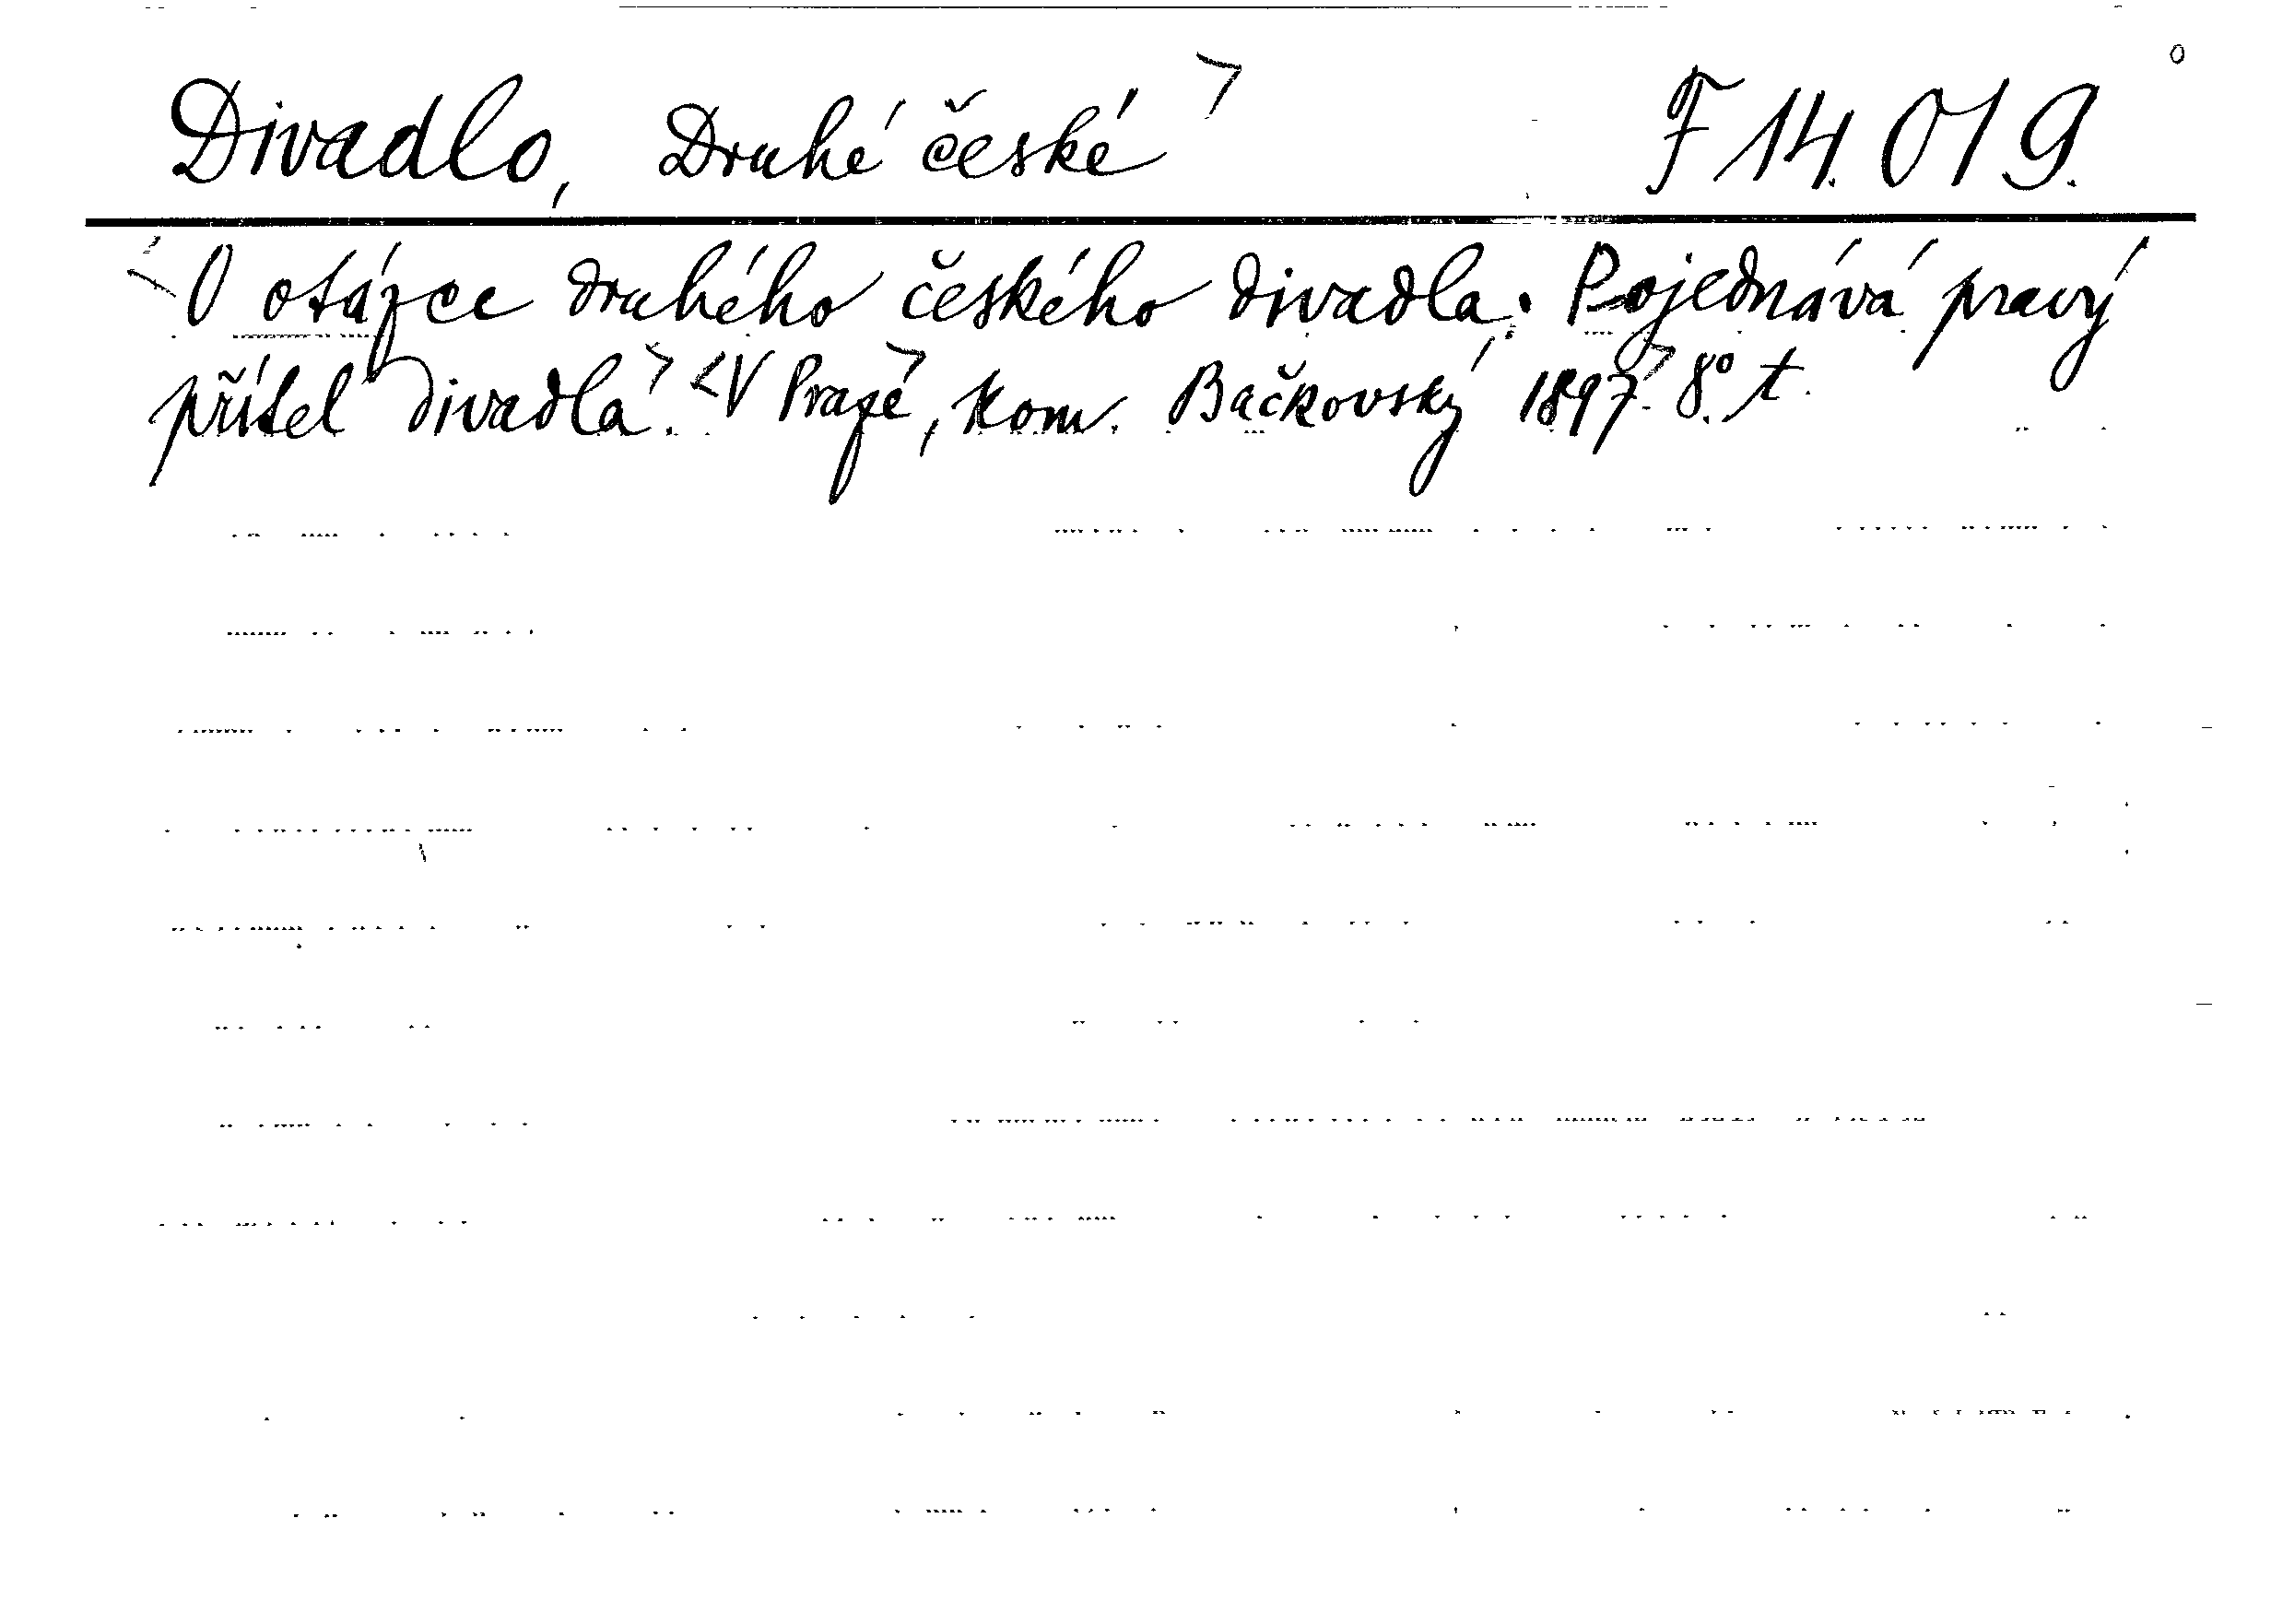 Divadlo, Druhé české F 14.019.
O otázce druhého českého divadla. Pojednává pravý
přítel divadla. V Praze, kom. Bačkovský 1897. 8° t.